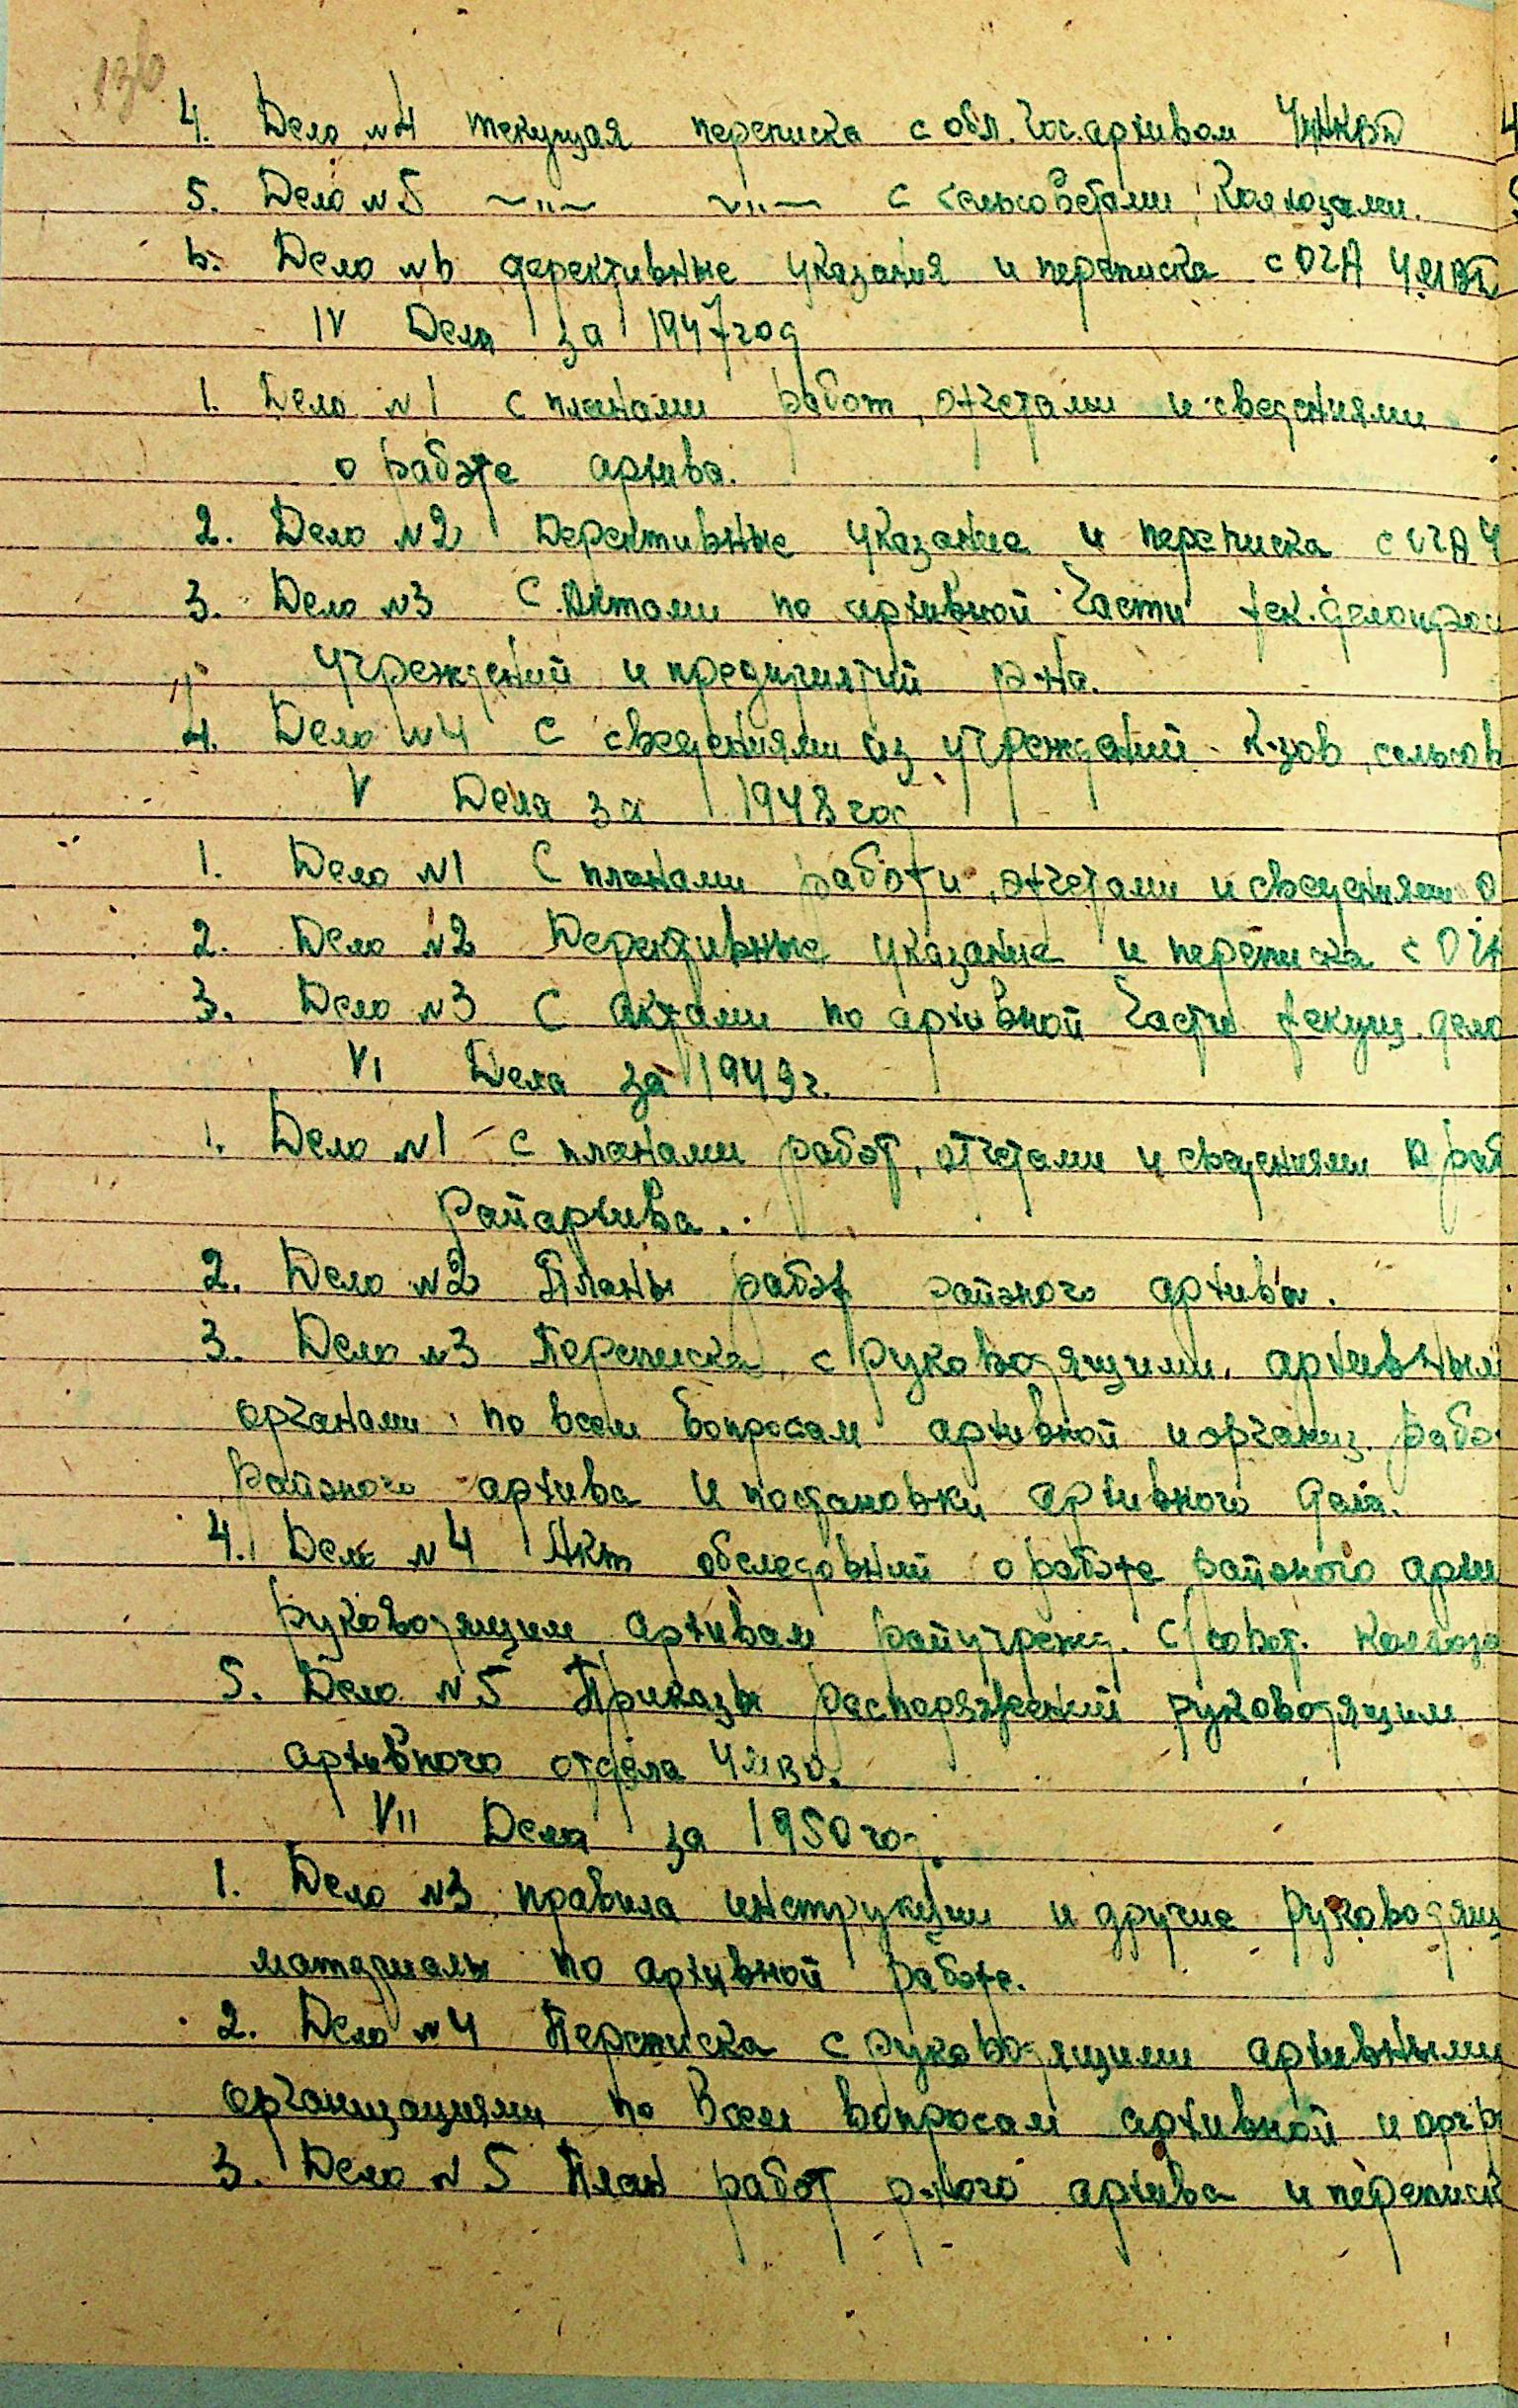 136
4. Дело №4 текущая переписка с обл. Гос. архивом УНКВД
5. Дело №5 —"— —"— с сельсоветами, Колхозами.
6. Дело №6 дерективные указания и переписка с ОГА УМВД
IV Дела за 1947 год
1. Дело №1 с планами работ, отчетами и сведениями
о работе архива.
2. Дело №2 Дерективные указание и переписка с ОГА У
3. Дело №3 С Актами по архивной части тек. делопрои
учреждений и предприятий р-на.
4. Дело №4 С сведениями из учреждений К-зов, сельсов
V Дела за 1948 год
1. Дело №1 С планами работы, отчетами и сведениями о
2. Дело №2 Дерективные указание и переписка с ОГА
3. Дело №3 С актами по архивной части текущ. дело
VI Дела за 1949 г.
1. Дело №1 с планами работ, отчетами и сведениями о раб
Райархива.
2. Дело №2 Планы работ районого архива.
3. Дело №3 Переписка с руководящими, архивным
органами по всем вопросам архивной и организ. рабо
районого архива и постановки архивного дела.
4. Дело №4 Акт обследовний о работе районого архи
руководящим архивам райучрежд. с/совет. колхоза
5. Дело №5 Приказы распоряжений руководящим
архивного отдела УМВД.
VII Дела за 1950 год.
1. Дело №3 правила инструкции и другие руководящ
матдриалы по архивной работе.
2. Дело №4 Переписка с руководящими архивными
организациями по всем вопросам архивной и оргр
3. Дело №5 План работ р-ного архива и переписк